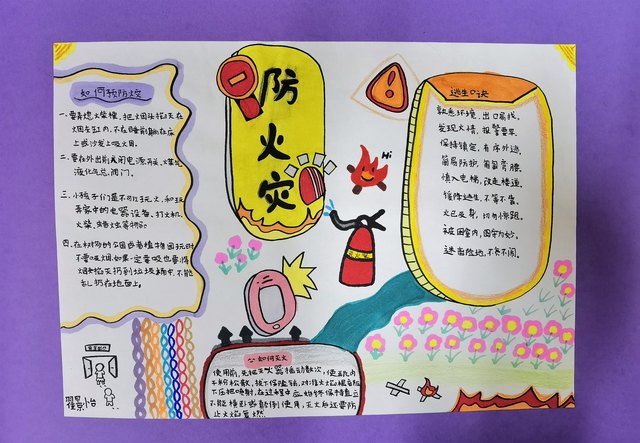 如何预防火灾
一、要弄熄火柴梗，把烟头掐灭在
烟灰缸内，不在睡前躺在床
上或沙发上吸火因。
二、要在外出前关闭电源开关，煤气
液化气总阀门。
三、小孩子们是不可以玩火，和玩
弄家中的电器设备、打火机、
火柴、蜡烛等物品。
四、在树林的公园或者植物园玩时
不要吸烟，如果一定要吸也要将
烟头掐灭扔到垃圾桶中，不能
乱扔在地面上。
防
火
灾
Hi
逃生口诀
熟悉环境，出口易找。
发现火情，报警要早。
保持镇定，有序外逃。
简易防护，匍匐弯腰。
慎入电梯，改走楼道。
缓降逃生，不等不靠。
火已及身，切勿惊跑。
被困室内，固守为妙。
速离险地，不贪不闹。
如何灭火
使用前，先把灭火器摇动数次，使瓶内
干粉松散，拔下保险销，对准火焰根部
下压把喷射，在过程中应始终保持直立
不能横卧或颠倒使用，灭火后还要防
止火焰复燃。
景怡